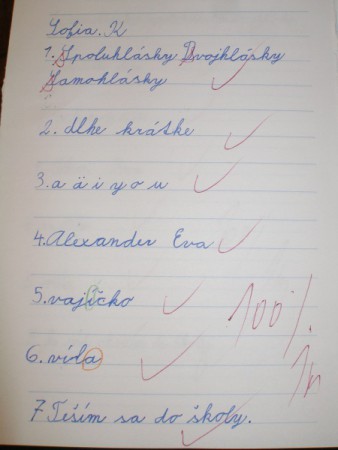 Sofia. K
1. Spoluhlásky Dvojhlásky
Samohlásky
2. dlhe krátke
3. a ä i y o u
4. Alexander Eva
5. vajíčko
100%
6. víla
1h
7 Teším sa do školy.